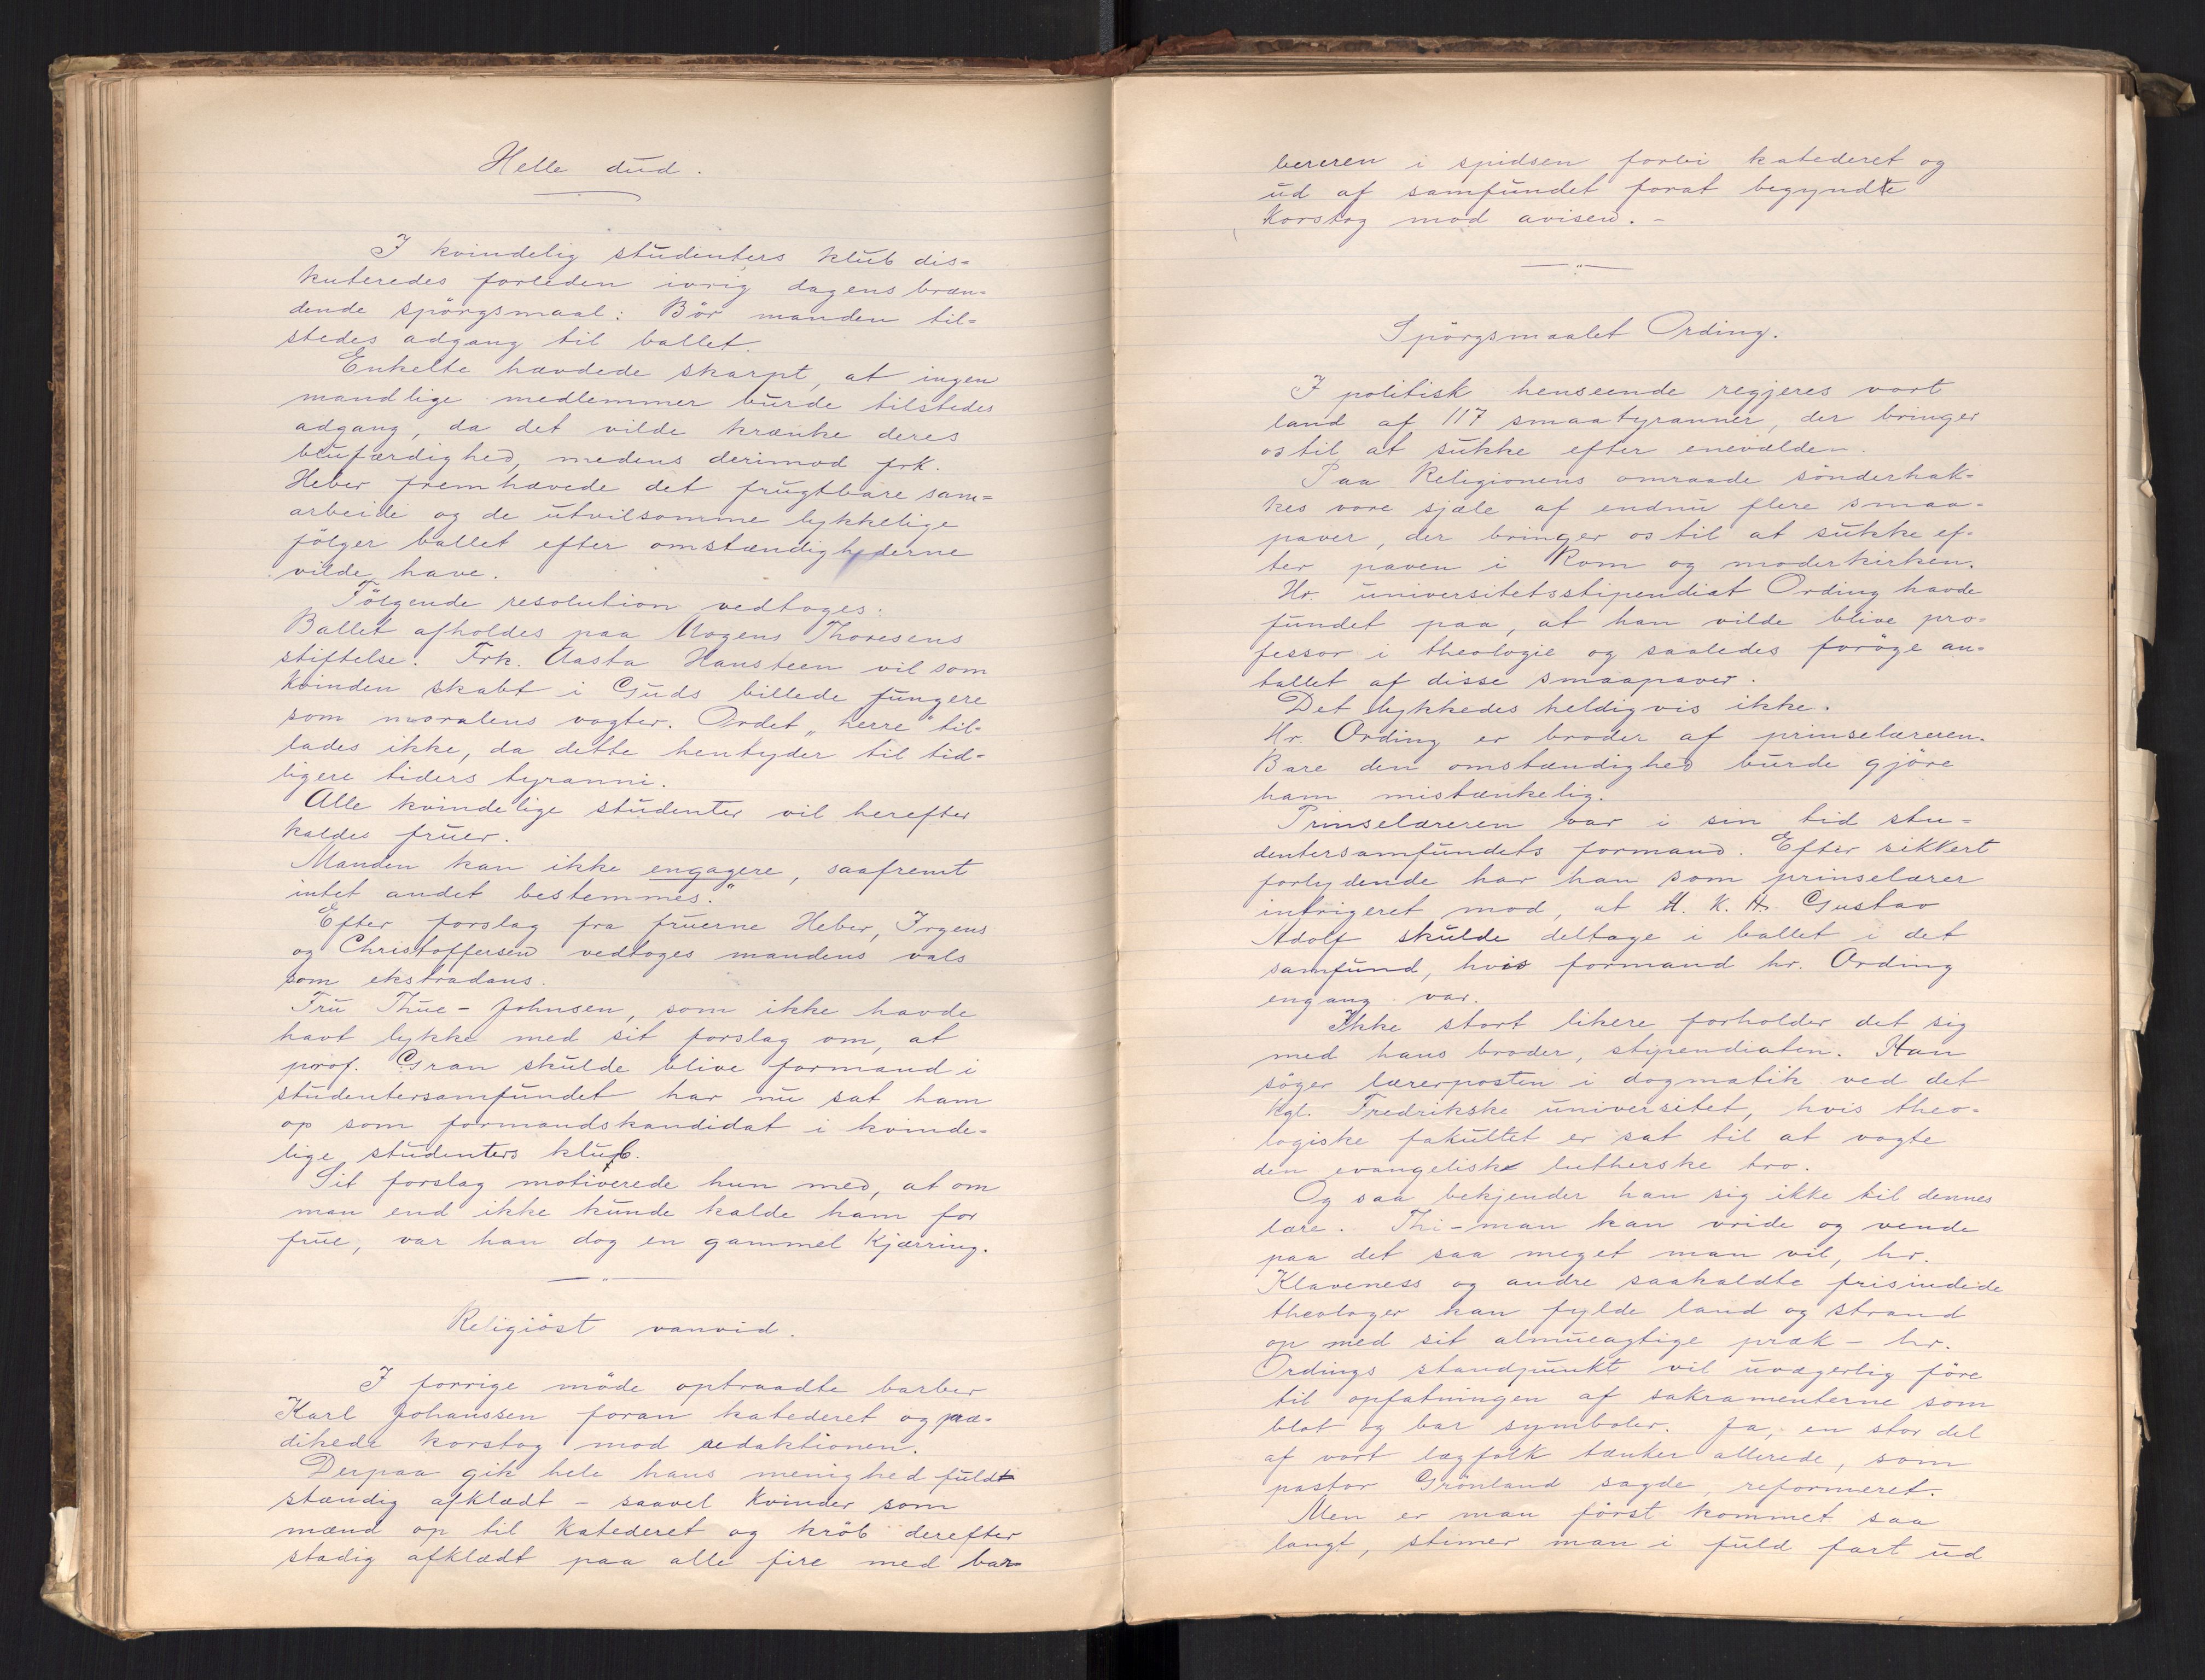 Helle dud.
I kvindelig studenters klub dis=
kuteredes forleden ivrig dagens bræn=
dende spörgsmaal: Bör manden til=
stedes adgang til ballet.
Enkelte hævdede skarpt, at ingen
mandlige medlemmer burde tilstedes
adgang, da det vilde krænke deres
blufærdighed, medens derimod frk.
Heber fremhævede det frugtbare sam=
arbeide og de utvilsomme lykkelige
fölger ballet efter omstændighederne
vilde have.
Fölgende resolution vedtoges:
Ballet afholdes paa Mogens Thoresens
stiftelse. Frk. Aasta Hansteen vil som
kvinden skabt i Guds billede fungere
som moralens vogter. Ordet „herre" til=
lades ikke, da dette hentyder til tid=
ligere tiders tyranni.
Alle kvindelige studenter vil herefter
kaldes fruer.
Manden kan ikke engagere, saafremt
intet andet bestemmes."
Efter forslag fra fruerne Heber, Irgens
og Christoffersen vedtoges mandens vals
som ekstradans.
Fru Thue-Johnsen, som ikke havde
havt lykke med sit forslag om, at
prof. Gran skulde blive formand i
studentersamfundet har nu sat ham
op som formandskandidat i kvinde=
lige studenters klub.
Sit forslag motiverede hun med, at om
man end ikke kunde kalde ham for
frue, var han dog en gammel kjærring.
Religiöst vanvid.
I forrige möde optraadte barber
Karl Johanssen foran katederet og præ=
dikede korstog mod redaktionen.
Derpaa gik hele hans menighed fuldt
stændig afklædt – saavel kvinder som
mænd op til katederet og kröb derefter
stadig afklædt paa alle fire med bar=
bereren i spidsen forbi katederet og
ud af samfundet forat begyndte
korstog mod avisen. –
Spörgsmaalet Ording.
I politisk henseende regjeres vort
land af 117 smaatyranner, der bringer
os til at sukke efter enevælden.
Paa Religionens omraade sönderhak=
kes vore sjæle af endnu flere smaa=
paver, der bringer os til at sukke ef=
ter paven i Rom og moderkirken.
Hr. universitetsstipendiat Ording havde
fundet paa, at han vilde blive pro=
fessor i theologie og saaledes foröge an=
tallet af disse smaapaver.
Det lykkedes heldigvis ikke.
Hr. Ording er broder af prinselæreren.
Bare den omstændighed burde gjöre
ham mistænkelig.
Prinselæreren var i sin tid stu=
dentersamfundets formand. Efter sikkert
forlydende har han som prinselærer
intrigeret mod, at H. K. H. Gustav
Adolf skulde deltage i ballet i det
samfund, hvis formand hr. Ording
engang var.
Ikke stort likere forholder det sig
med hans broder, stipendiaten. Han
söger lærerposten i dogmatik ved det
kgl. Fredrikske universitet, hvis theo=
logiske fakultet er sat til at vogte
den evangelisk lutherske tro.
Og saa bekjender han sig ikke til dennes
lære. Thi – man kan vride og vende
paa det saa meget man vil, hr.
Klaveness og andre saakaldte frisindede
theologer kan fylde land og strand
op med sit almueagtige præk – hr.
Ordings standpunkt vil uvægerlig före
til opfatningen af sakramenterne som
blot og bar symboler. Ja, en stor del
af vort lægfolk tænker allerede, som
pastor Grönland sagde, reformeret.
Men er man först kommet saa
langt, stimer man i fuld fart ud